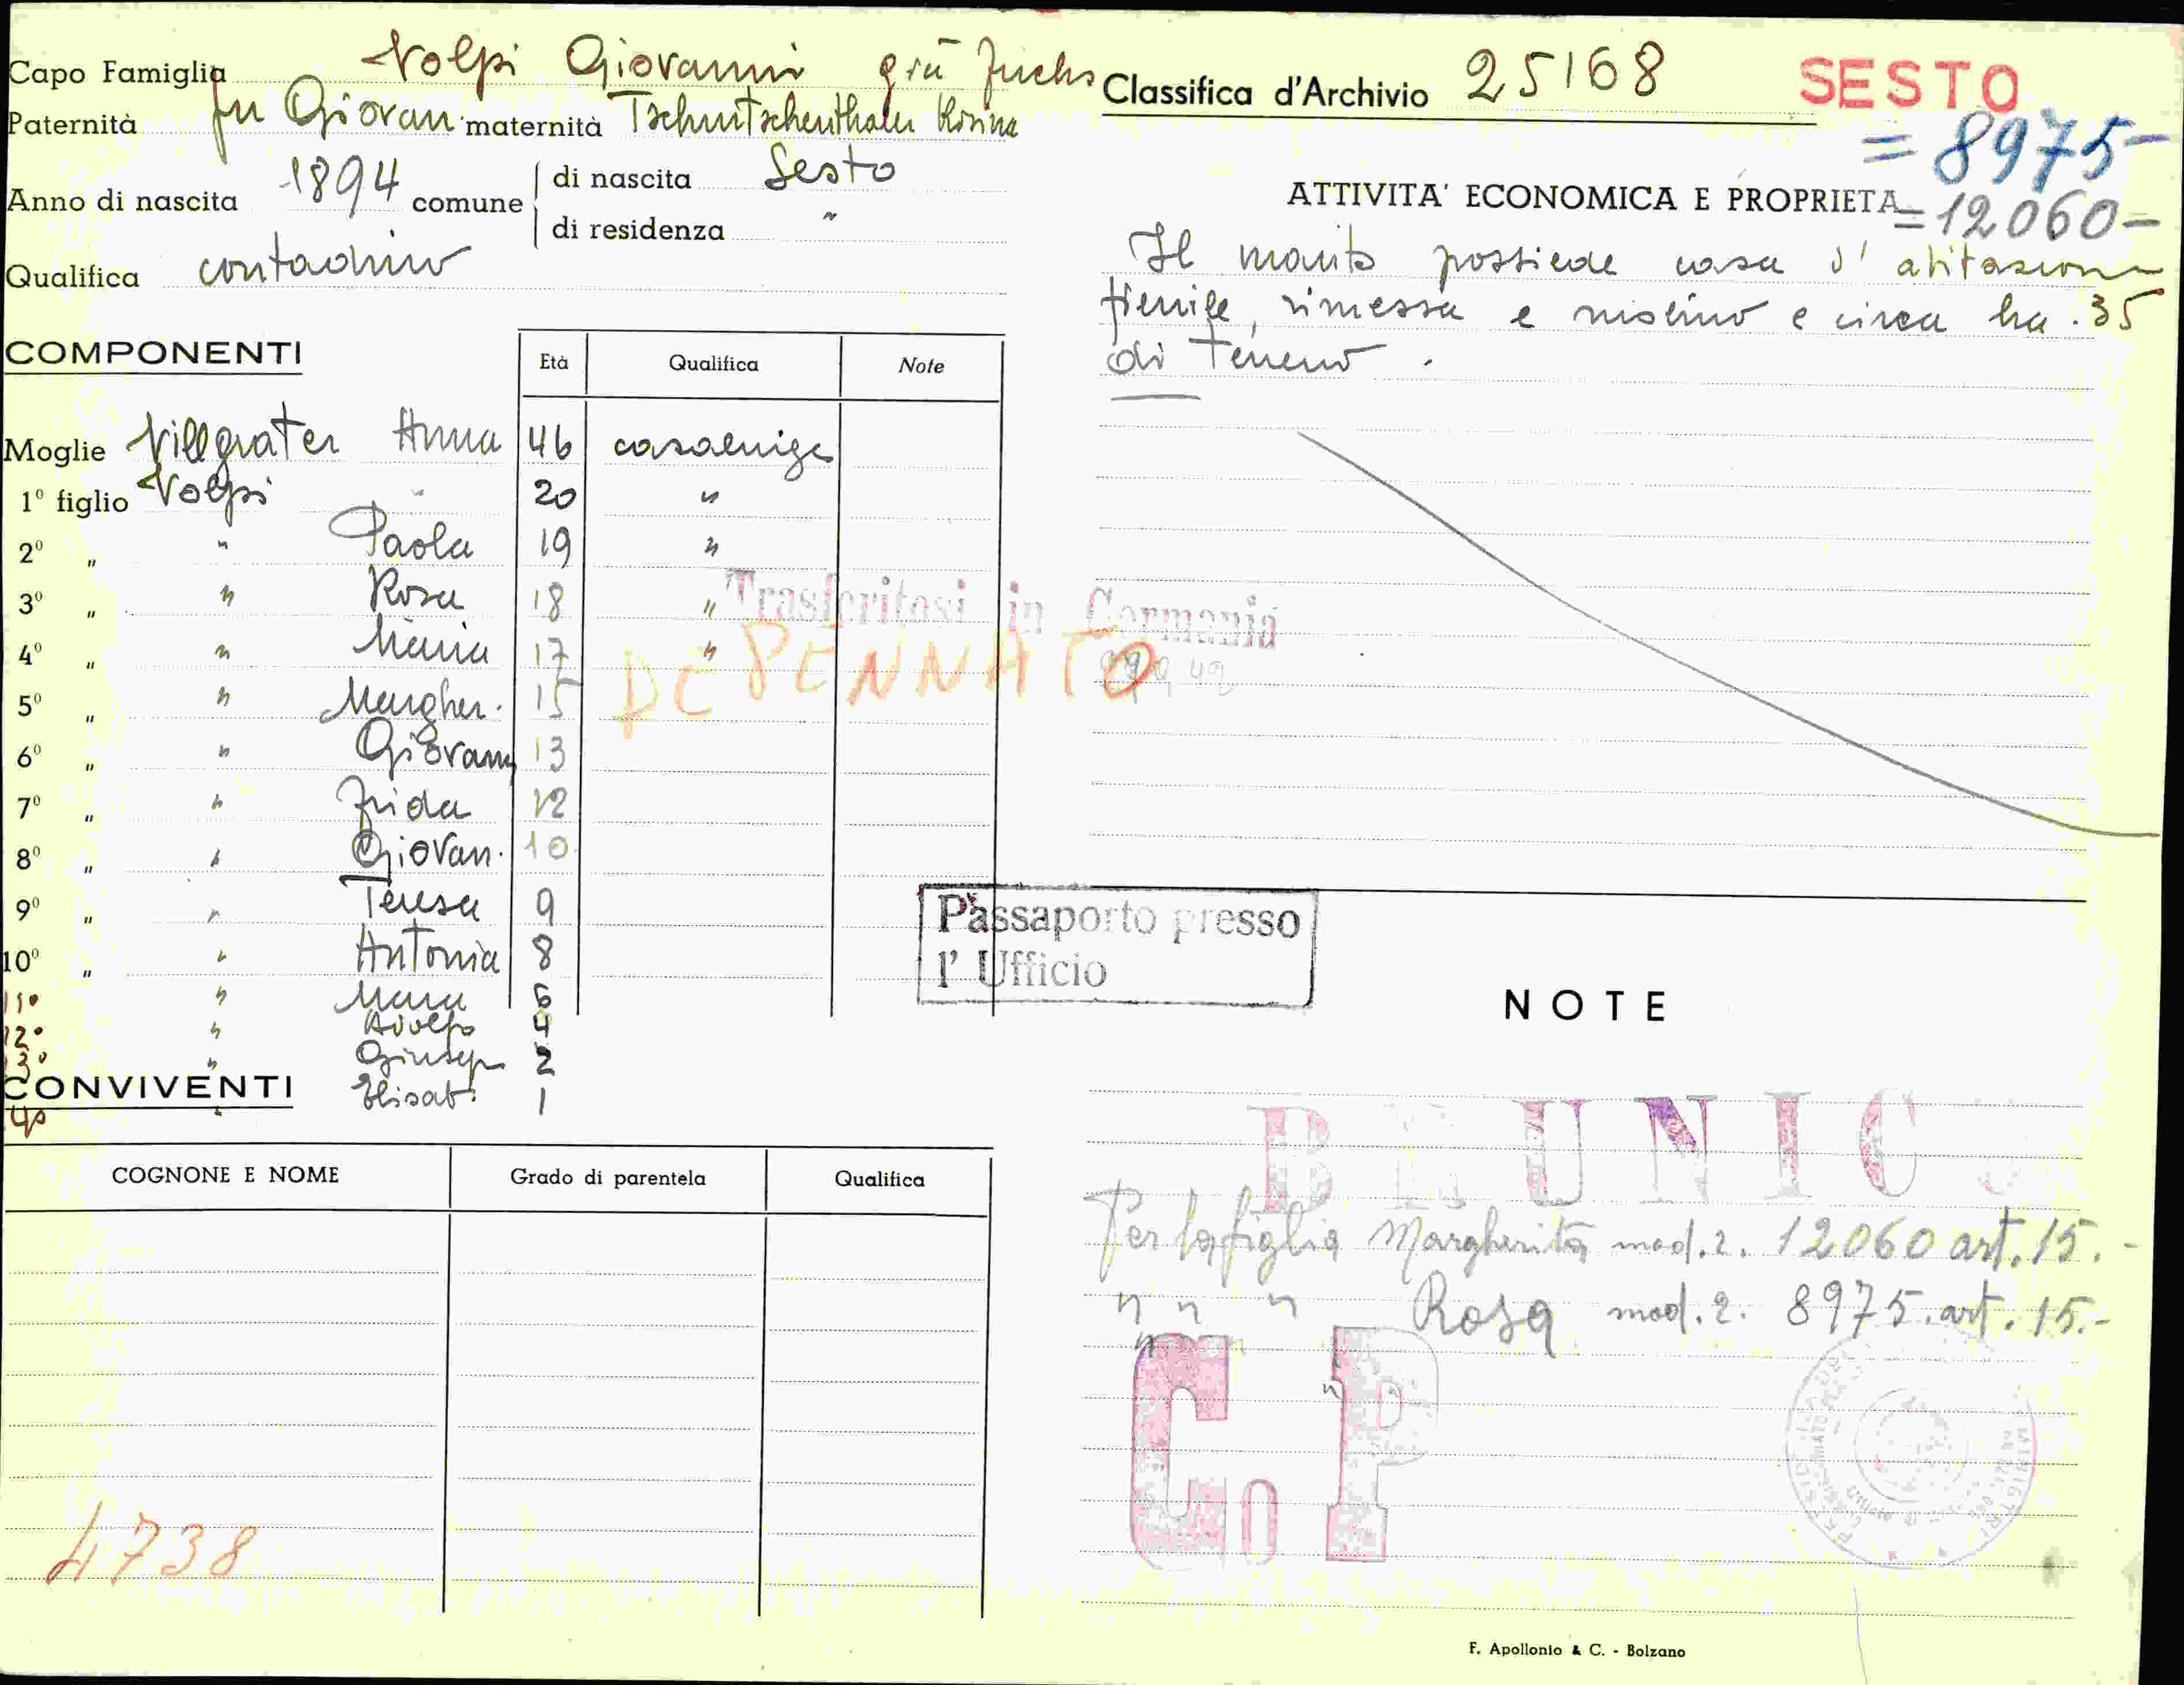 Capo Famiglia Volpi Giovanni già Fuchs
Paternità fu Giovan. maternità Tschurtschenthaler Rosina
Anno di nascita 1894 comune di nascita Sesto
di residenza "
Qualifica contadino
COMPONENTI
Età Qualifica Note
Moglie Villgrater Anna 46 casalinga
1º figlio Volpi " 20 "
2º " " Paola 19 "
3º " " Rosa 18 "
4º " " Maria 17 "
5º " " Margher. 15
6º " " Giovann 13
7º " " Frida 12
8º " " Giovan. 10
9º " " Teresa 9
10º " " Antonia 8
11º " 6
12º " Adolfo 4
13º " Giusep 2
CONVIVENTI
14º " Elisab. 1
COGNONE E NOME Grado di parentela Qualifica
4738
Trasferitosi in Germania
DEPENNATO
Passaporto presso
l' Ufficio
Classifica d'Archivio 25168
SESTO
= 8975-
ATTIVITA' ECONOMICA E PROPRIETA
= 12060-
Il marito possiede casa d' abitazione
fienile, rimessa e molino e circa ha. 35
di terreno.
NOTE
Per la figlia Margherita mod. 2. 12060 art. 15.-
" " " Rosa mod. 2. 8975. art. 15.-
C n P
F. Apollonio & C. - Bolzano